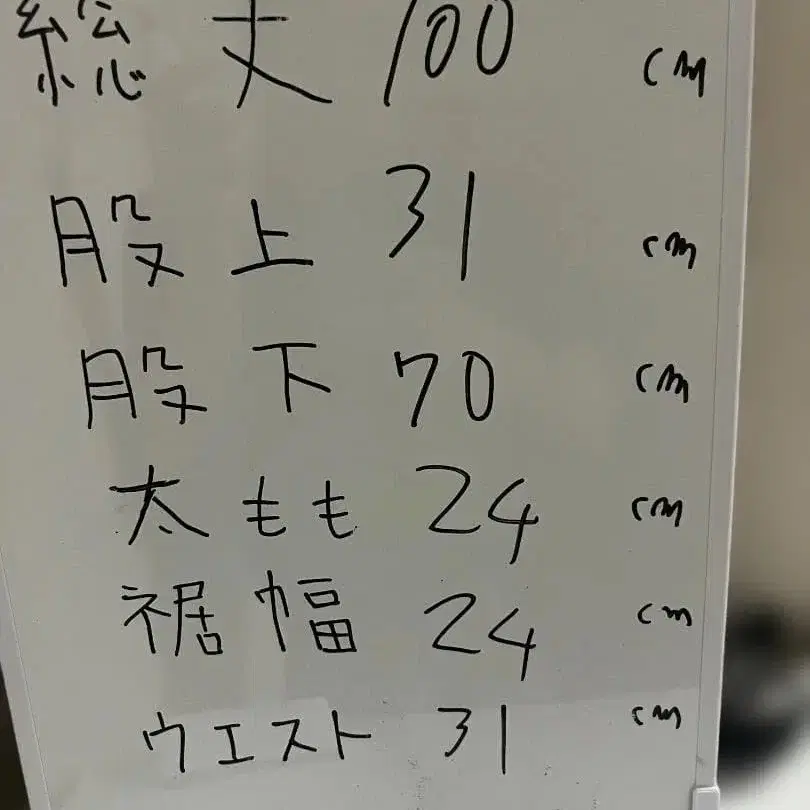 総丈 100 cm
股上 31 cm
股下 70 cm
太もも 24 cm
裾幅 24 cm
ウエスト 31 cm